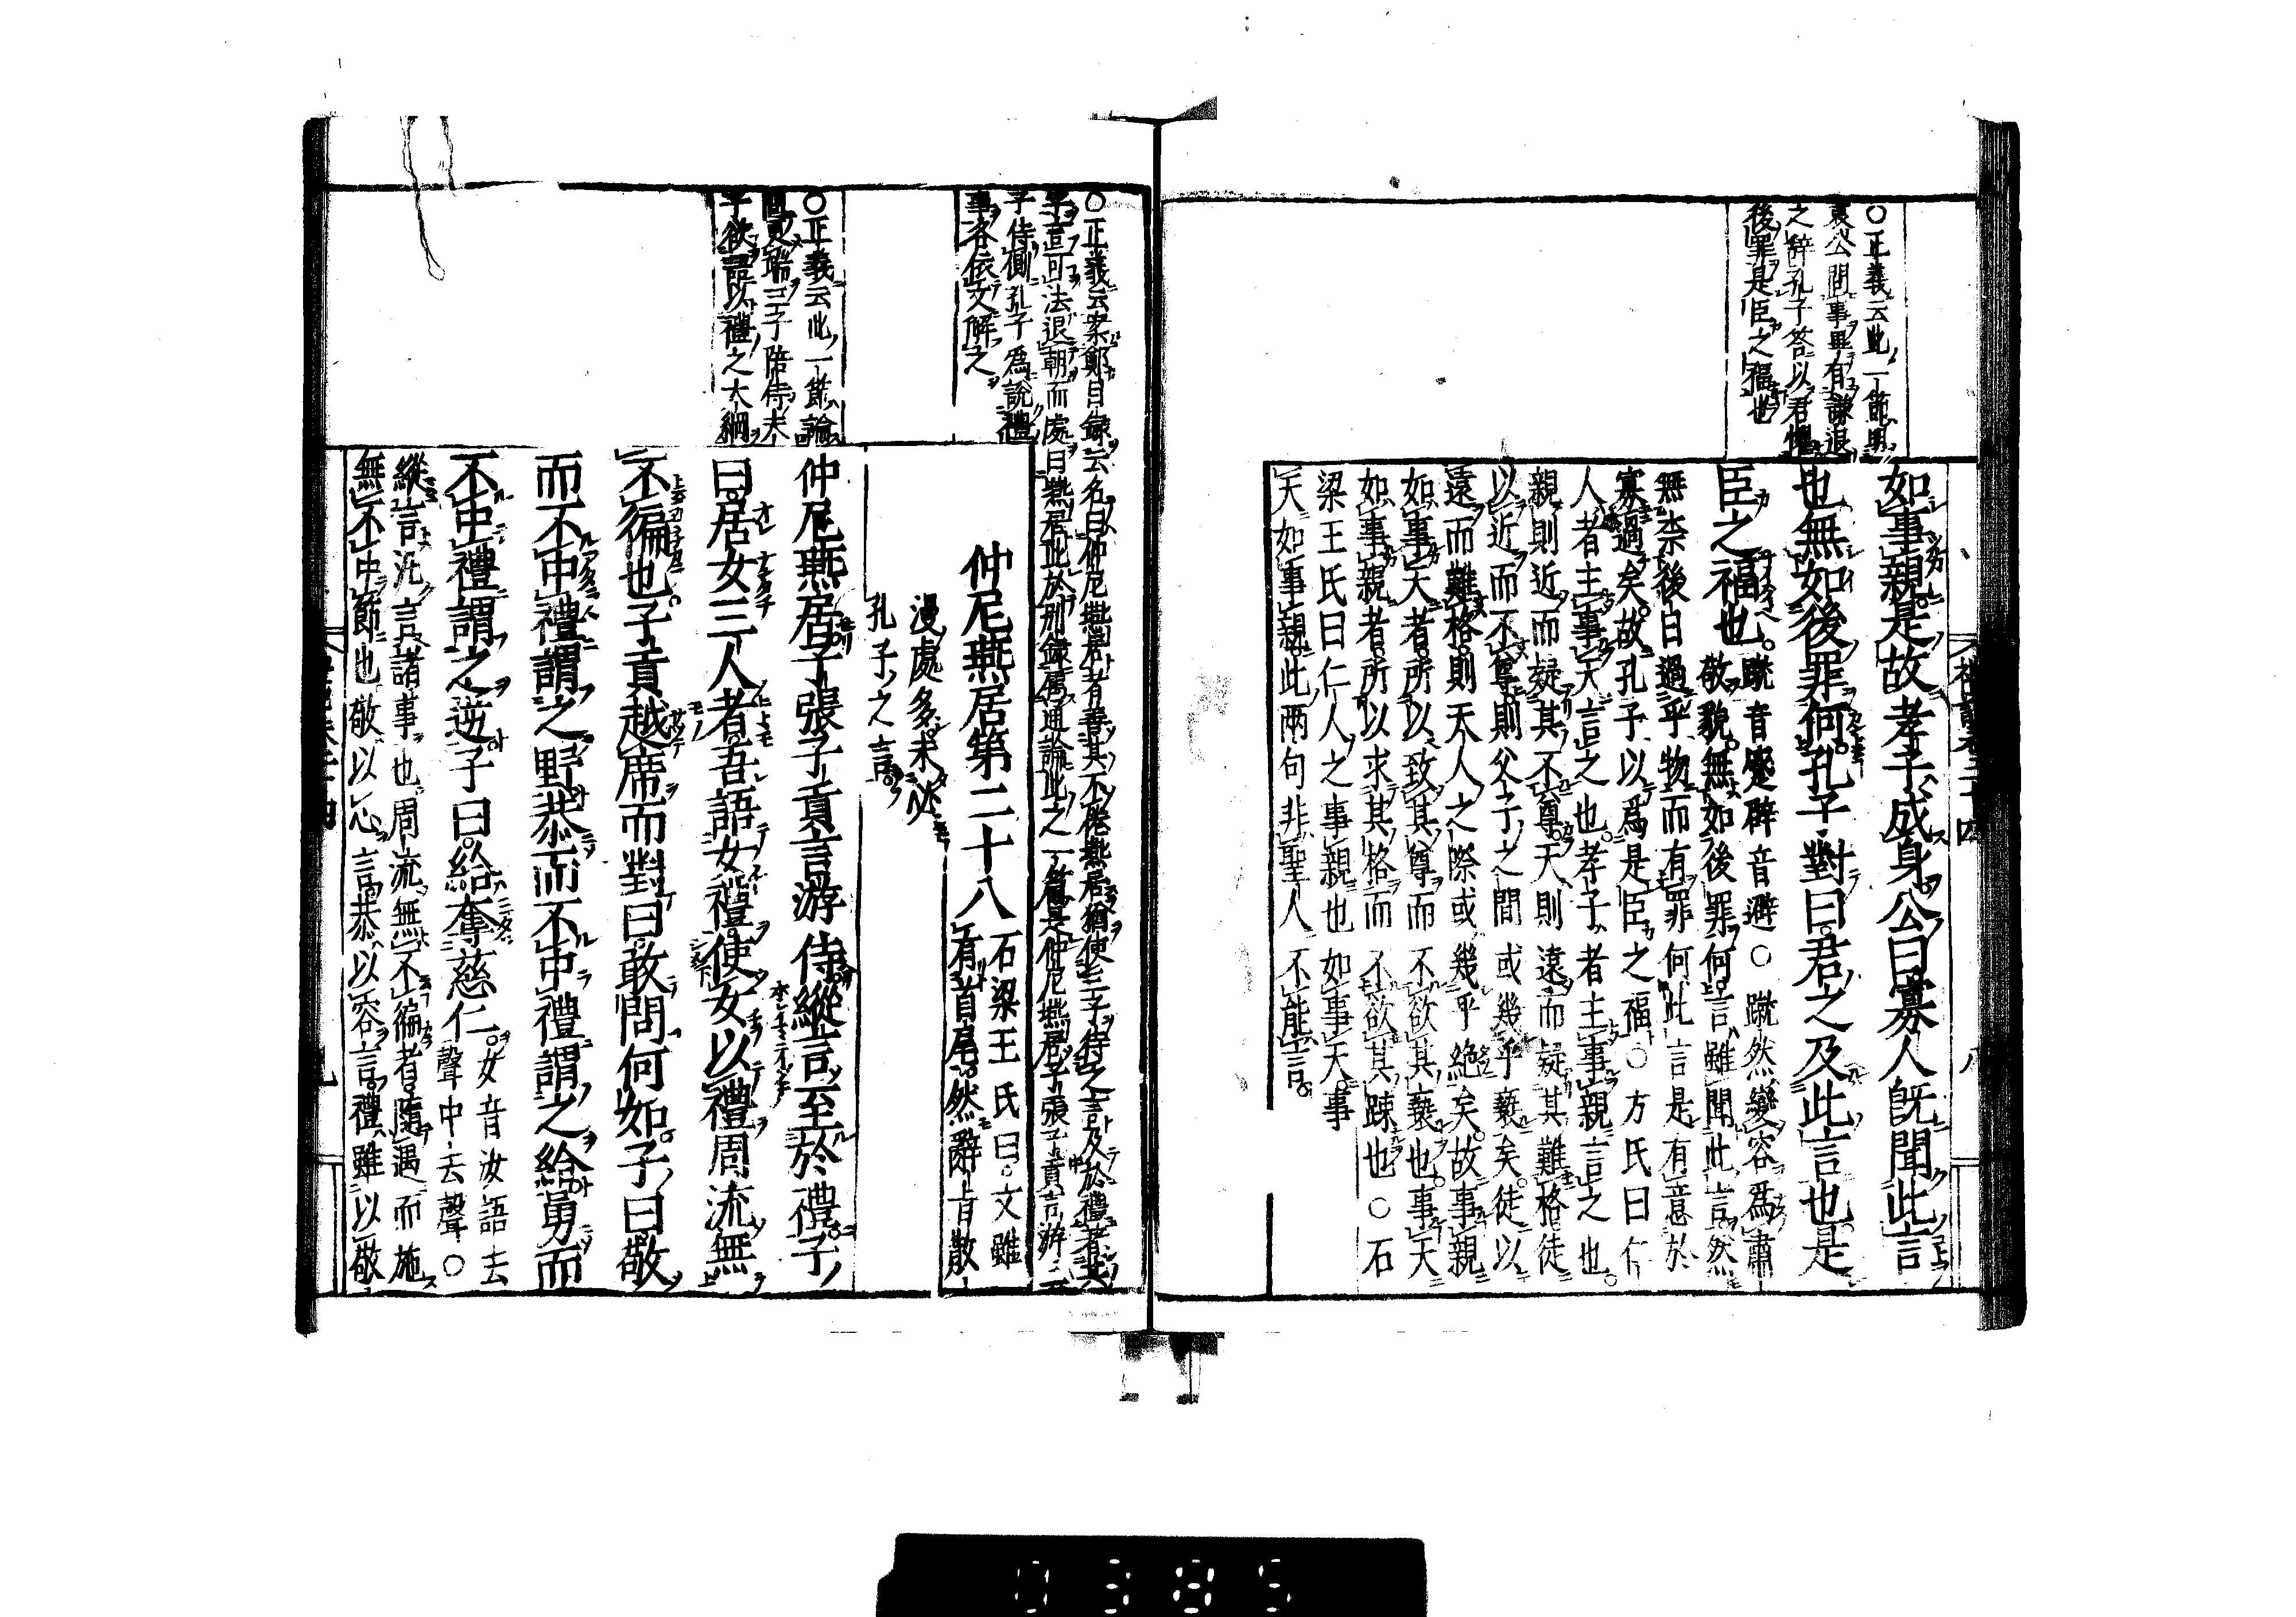 ○正義云此一節明
哀公問事畢有謙退
之辭孔子答以君懼
後罪是臣之福也
如事親是故孝子成身公曰寡人旣聞此言
也無如後罪何孔子對曰君之及此言也是
臣之福也
蹴音蹙辟音避○蹴然變容爲肅
敬貌無如後罪何言雖聞此言然
無柰後日過乎物而有罪何此言是有意於
寡過矣故孔子以爲是臣之福○方氏曰仁
人者主事天言之也孝子者主事親言之也
親則近而疑其不尊天則遠而疑其難格徒
以近而不尊則父子之間或幾乎褻矣徒以
遠而難格則天人之際或幾乎絶矣故事親
如事天者所以致其尊而不欲其褻也事天
如事親者所以求其格而不欲其踈也○石
梁王氏曰仁人之事親也如事天事
天如事親此兩句非聖人不能言
○正義云案鄭目録云名曰仲尼燕居者善其不倦燕居猶使三子侍之言及於禮者
子侍側孔子爲說禮
事各依文解之
仲尼燕居第二十八
石梁王氏曰文雖
有首尾然辭旨散
漫處多未必
孔子之言
○正義云此一節論
子欲語以禮之大綱
仲尼燕居子張子貢言游侍縱言至於禮子
曰居女三人者吾語女禮使女以禮周流無
不徧也子貢越席而對曰敢問何如子曰敬
而不中禮謂之野恭而不中禮謂之給勇而
不中禮謂之逆子曰給奪慈仁
女音汝語去
聲中去聲○
縱言汎言諸事也周流無不徧者隨遇而施
無不中節也敬以心言恭以容言禮雖以敬
0385